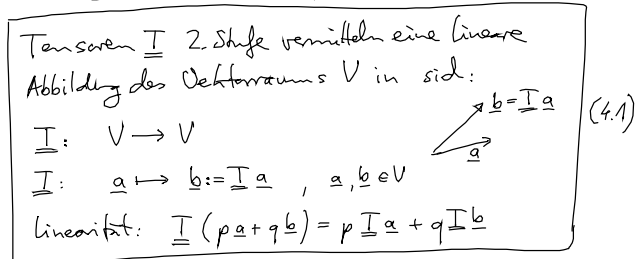 Tensoren T̳ 2. Stufe vermitteln eine lineare
Abbildung des Vektorraums V in sich:
T̳: V ⟶ V
b̲ = T̳ a̲
a̲
(4.1)
T̳: a̲ ↦ b̲ := T̳ a̲ , a̲, b̲ ∈ V
Linearität: T̳ (p a̲ + q b̲) = p T̳ a̲ + q T̳ b̲